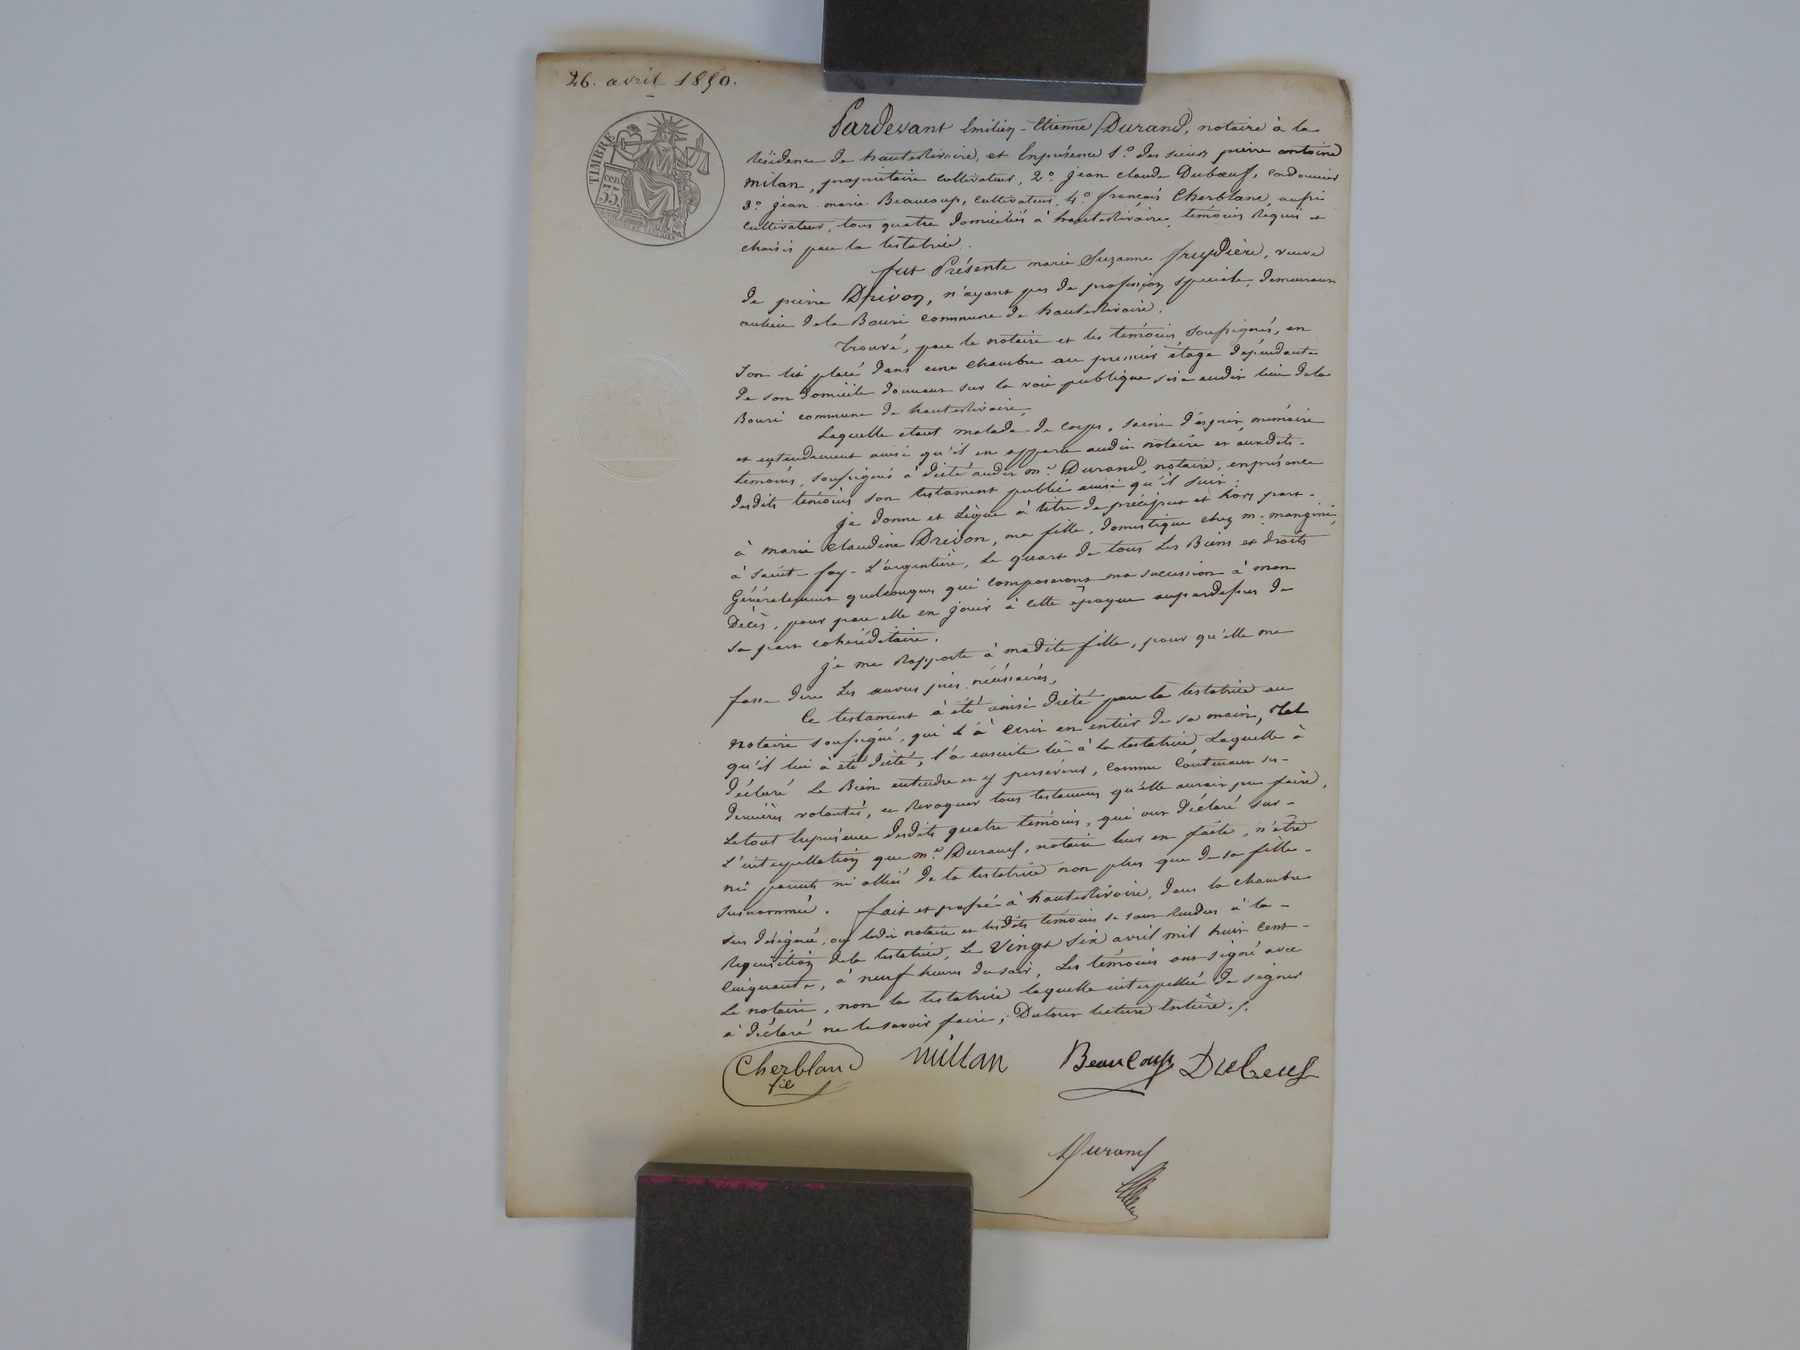 26. avril 1850.
TIMBRE
35 cen
Pardevant Emilien-Etienne Durand, notaire à la
Résidence de hauterivoire, et Enprésence 1.° des sieurs pierre antoine
milan, propriétaire cultivateur, 2.° jean claude Dubœuf, Cordonnier
3.° jean-marie Beaucoup, cultivateur, 4.° françois Cherblanc, aussi
cultivateur, tous quatre domiciliés à hauterivoire, témoins Réquis et
choisis par la testatrice.
fut Présente marie Suzanne, veuve
de pierre Drivon, n'ayant pas de profession spéciale, demeurant
aulieu dela Bouri commune de hauterivoire.
trouvé, par le notaire et les témoins soussignés, en
son lit placé dans une chambre au premier étage dépendante
de son domicile donnant sur la voie publique sise audit lieu dela
Bouri commune de hauterivoire,
Laquelle etant malade de corps, saine d'ésprit, mémoire
et entendement ainsi qu'il en apparu audit notaire et auxdits-
témoins, soussignés à dicté audit m.e Durand, notaire, enprésence
desdits témoins son testament public ainsi qu'il suit:
je donne et Lègue à titre de préciput et hors part-
à marie Claudine Drivon, ma fille, domestique chez m.r mangini,
à Saint-foy-L'argentière, Le quart de tous Les Biens et droits
Généralement quelconques qui composeront ma succession à mon
Décès, pour par elle en jouir à cette époque aupardessus de
sa part cohéréditaire.
je me Rapporte à madite fille, pour qu'elle me
fasse dire Les œuvres pies nécessaires.
Ce testament à été ainsi dicté par la testatrice au
notaire soussigné, qui l'à écrit en entier de sa main, tel
qu'il lui à été dicté, l'a ensuite lû à la testatrice, Laquelle à
déclaré Le Bien entendre et y persévérer, comme Contenant ses-
dernières volontés, et Révoquer tous testaments qu'elle aurait pu faire,
Letout Enprésence desdits quatre témoins, qui ont déclaré sur-
L'interpellation que m.e Durand, notaire leur en faite, n'être
ni parents ni alliés de la testatrice non plus que de sa fille-
susnommée. fait et passé à hauterivoire, dans la chambre
sus désignée, où ledit notaire et lesdits témoins se sont Rendus à la-
Réquisition dela testatrice, Le Vingt six avril mil huit cent-
Cinquante, à neuf heures du soir, Les témoins ont signé avec
Le notaire, non la testatrice laquelle interpellée de signer
à déclaré ne le savoir faire; Dutout lecture Entière./.
Cherblanc fils
millan
Beaucoup
Dubeuf
Durand